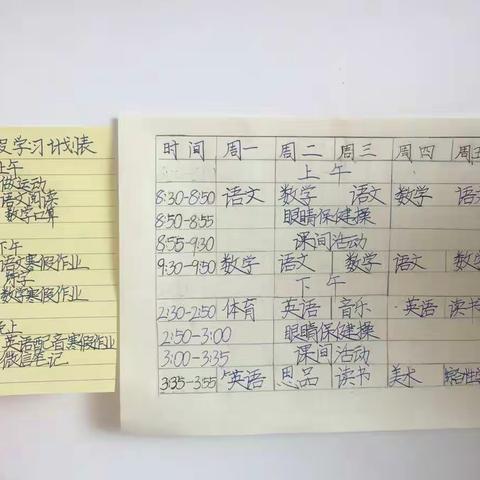 学习计划表
上午
做运动
语文阅读
数学口算
下午
语文寒假作业
练字
数学寒假作业
晚上
英语配音寒假作业
微信笔记
时间 周一 周二 周三 周四 周五
上午
8:30-8:50 语文 数学 语文 数学 语文
8:50-8:55 眼睛保健操
8:55-9:30 课间活动
9:30-9:50 数学 语文 数学 语文 数学
下午
2:30-2:50 体育 英语 音乐 英语 读书
2:50-3:00 眼睛保健操
3:00-3:35 课间活动
3:35-3:55 英语 思品 读书 美术